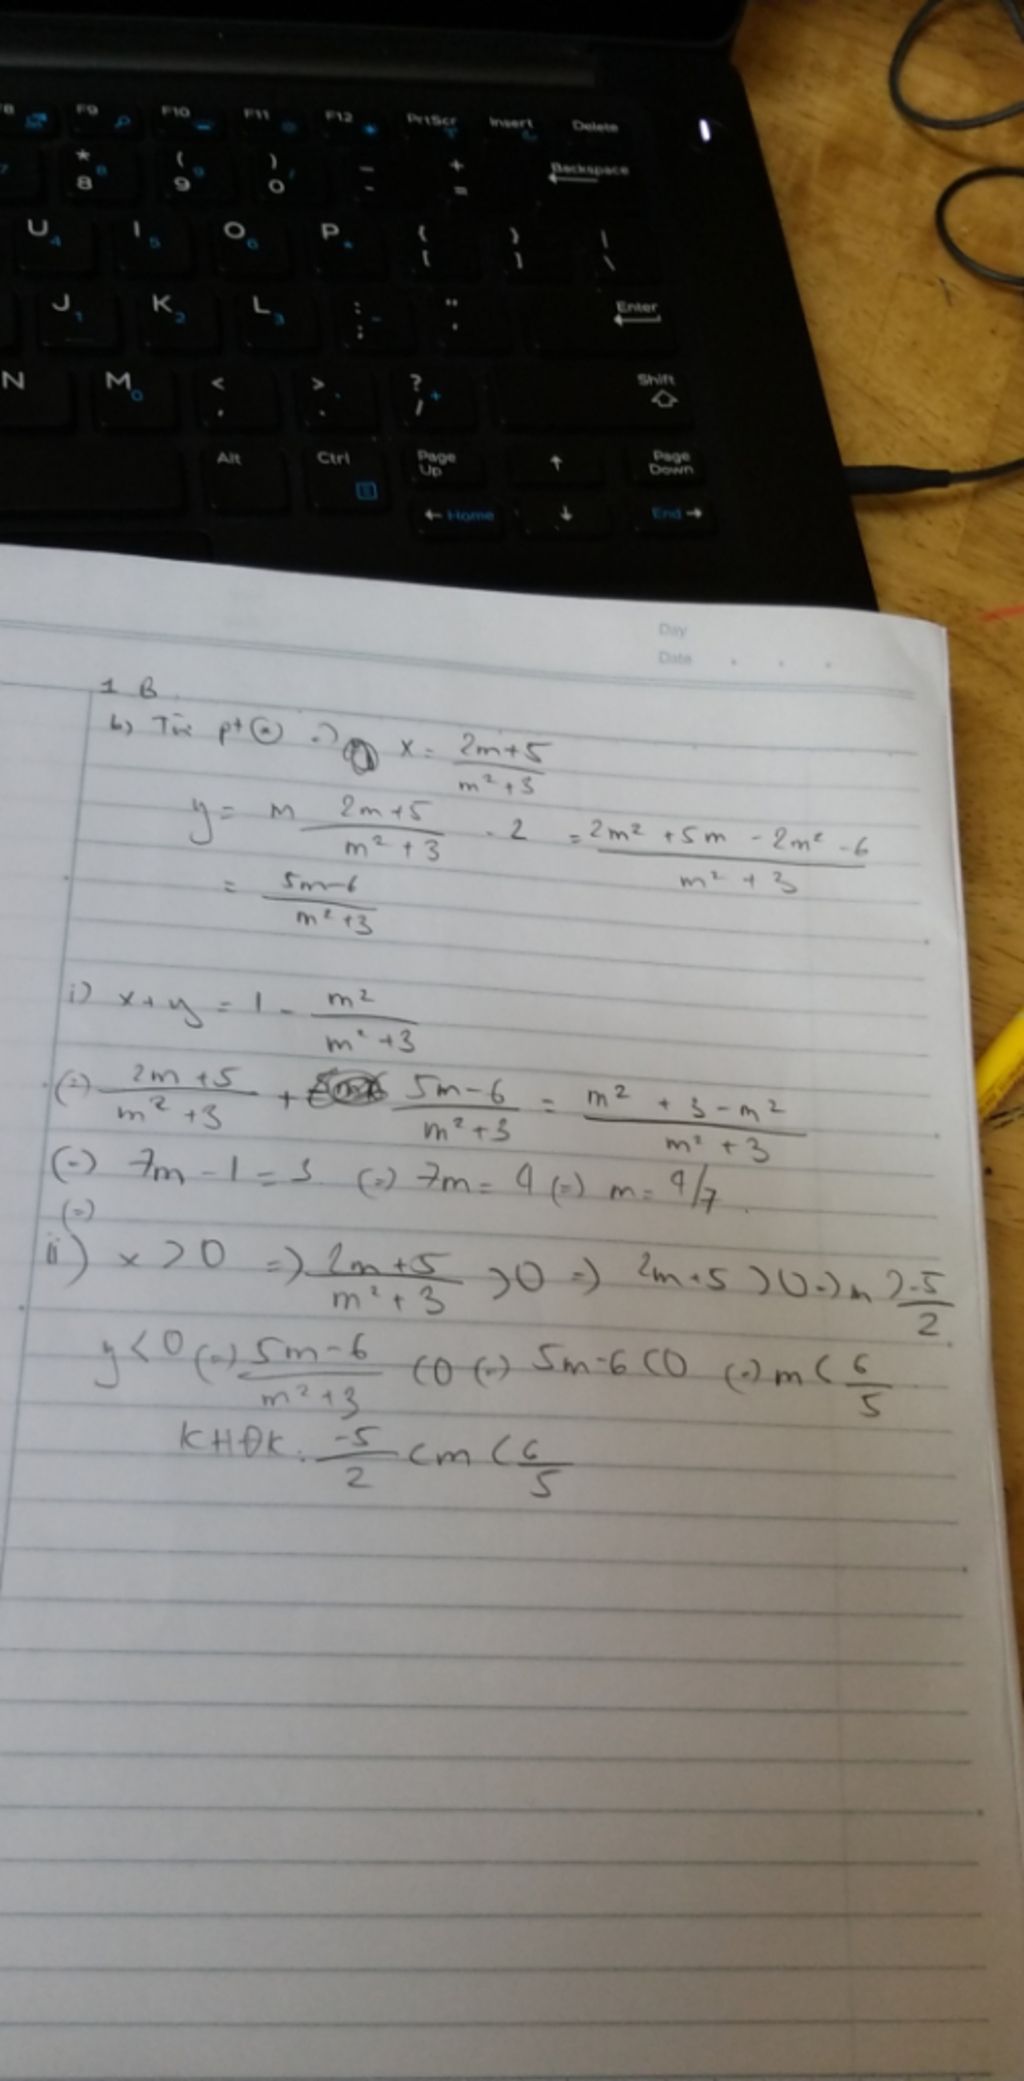 F8 F9 F10 F11 F12 PrtScr Insert Delete
7 * 8 8 ( 9 9 ) 0 / _ - + = Backspace
U 4 I 5 O 6 P * { [ } ] | \
J 1 K 2 L 3 : ; - " ' Enter
N M 0 < , > . ? / + Shift
Alt Ctrl Page Up ↑ Page Down
← Home ↓ End →
Day
Date
1 B
b) Từ pt (*) => x = (2m+5)/(m²+3)
y = m (2m+5)/(m²+3) - 2 = (2m² + 5m - 2m² - 6)/(m² + 3)
= (5m-6)/(m²+3)
i) x + y = 1 - m²/(m²+3)
(=) (2m+5)/(m²+3) + (5m-6)/(m²+3) = (m² + 3 - m²)/(m² + 3)
(=) 7m - 1 = 3 (=) 7m = 4 (=) m = 4/7
(=)
ii) x > 0 => (2m+5)/(m²+3) > 0 => 2m+5 > 0 => m > -5/2
y < 0 (=) (5m-6)/(m²+3) < 0 (=) 5m-6 < 0 (=) m < 6/5
KHĐK: -5/2 < m < 6/5